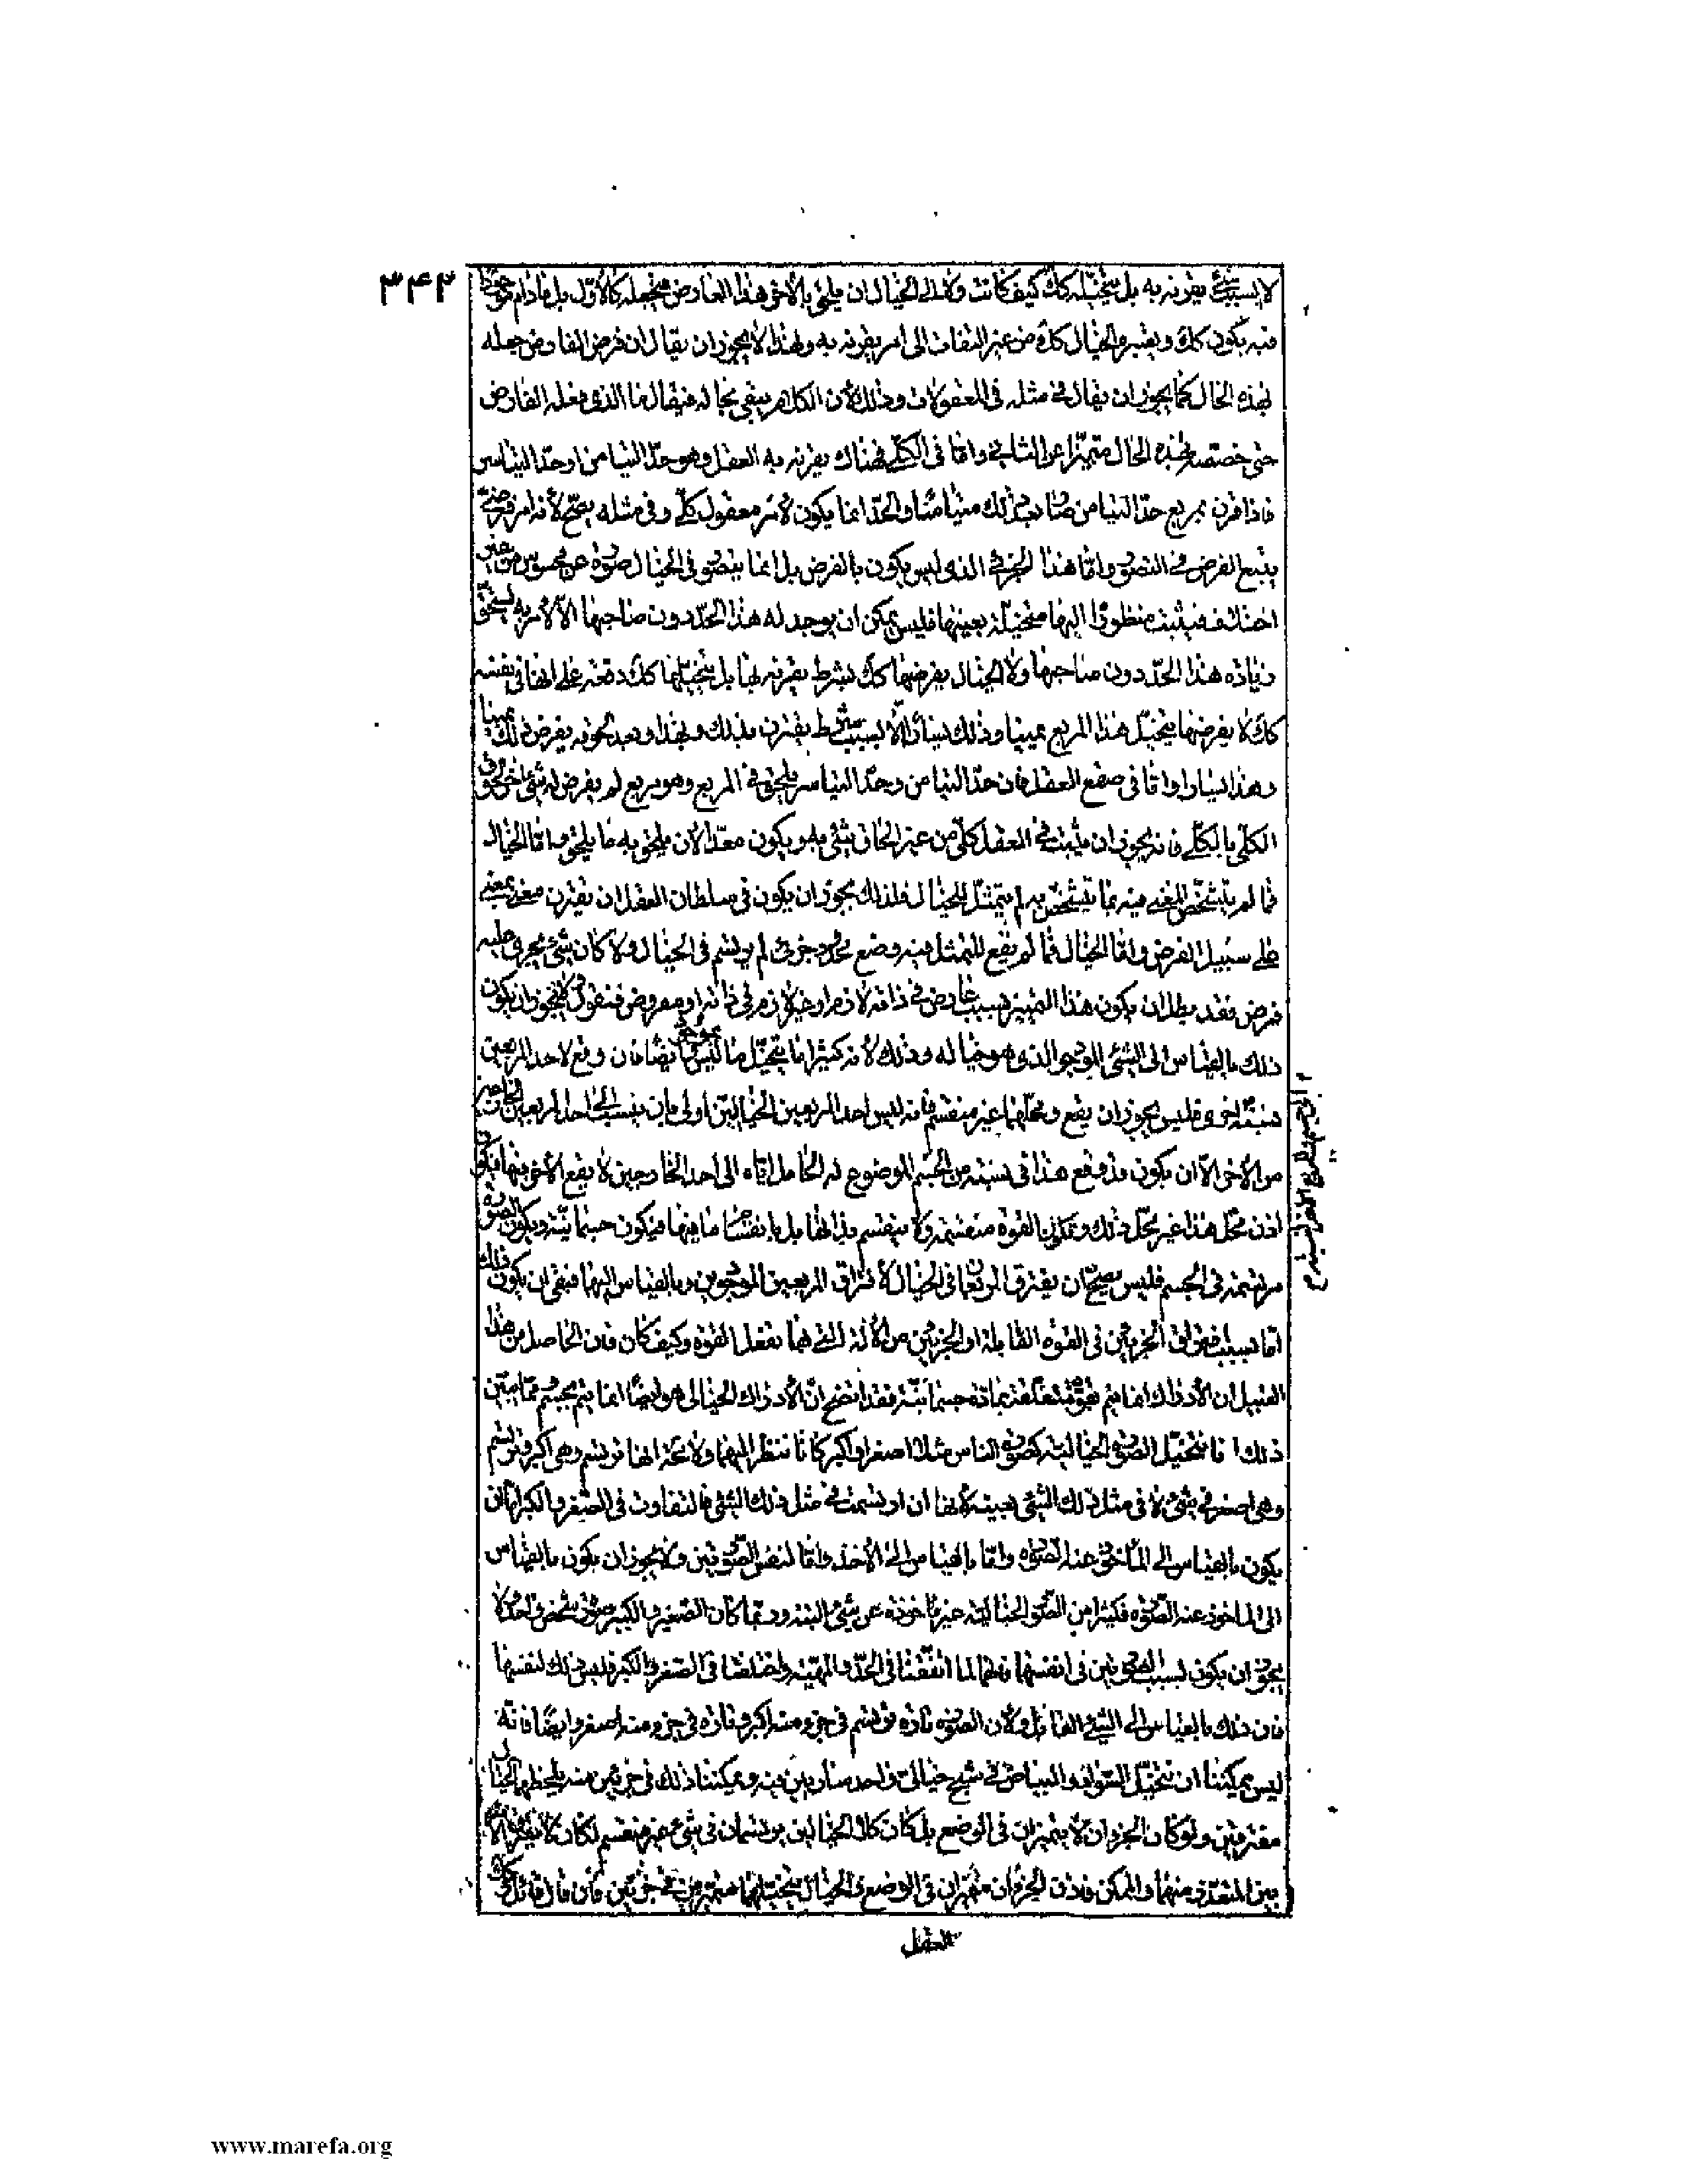 ٣٤٢
لا بسبب شئ يقرنه به بل يتخيله كك كيف كانت ولا الى الخيال ان يلحق بالاخر هذا العارض فيجعله كالاول بل ما دام موجودا
فيه يكون كك ويعتبره الخيال كك من غير التفات الى امر يقرنه به ولهذا لا يجوز ان يقال ان فرض الفارض جعله
بهذه الحال كما يجوز ان يقال فى مثله فى المعقولات وذلك لان الكلام يبقى بحاله فيقال ما الذى فعله الفارض
حتى خصصه بهذه الحال متميزا عن الثانى واما فى الكلى فهناك يقرنه به العقل وهو حد التيامن او حد التياسر
فاذا قرن بمربع حد التيامن صار بعد ذلك متيامنا والحد انما يكون لامر معقول كلى وفى مثله يصح لانه امر فرضى
يتبع الفرض فى التصور واما هذا الجزئى الذى ليس يكون بالفرض بل انما يتصور فى الخيال صورة عن محسوس من غير
اختلاف فيثبت منظورا اليها متخيلة بعينها فليس يمكن ان يوجد له هذا الحد دون صاحبها الا لامر به يستحق
زيادة هذا الحد دون صاحبها ولا الخيال يفرضها كك بشرط يقرنه بها بل يتخيلها كك دفعة على انها فى نفسه
كك لا يفرضها فيتخيل هذا المربع يمينا وذلك يسارا الا بسبب شرط يقترن بذلك وبهذا وبعد لحوقه يفرض ذلك يمينا
وهذا يسارا واما فى صقع العقل فان حد التيامن وحد التياسر يلحق فى المربع وهو مربع لم يعرض له شئ اخر لحوق
الكلى بالكلى فانه يجوز ان يثبت فى العقل كلى من غير الحاق شئ به ويكون معدا لان يلحق به ما يلحق واما الخيال
فما لم يتشخص المعنى فيه بما يتشخص به لم يتمثل للخيال فلذلك يجوز ان يكون فى سلطان العقل ان يقترن معنى بمعنى
على سبيل الفرض واما الخيال فما لم يقع للتمثل فيه وضع محدود جزئى لم يرتسم فى الخيال ولا كان شئ يجرى عليه
فرض فقد بطل ان يكون هذا التمييز بسبب عارض فى ذاته لازم او غير لازم فى ذاته او مفروض فنقول ولا يجوز ان يكون
ذلك بالقياس الى الشئ الموجود الذى هو خياله وذلك لانه كثيرا ما يتخيل ما ليس بموجود وايضا فان وقع لاحد المربعين
نسبة اخرى فليس يجوز ان يقع ومحلهما غير منقسم فانه ليس احد المربعين الخياليين اولى بان ينسب الى احد المربعين الخارجين
من الاخر الا ان يكون قد وقع هذا فى نسبته من الجسم الموضوع له الحامل اياه الى احد الخارجين لا يقع الاخر فيها فيكون
اذن محل هذا غير محل ذلك وتكون القوة منقسمة ولا ينقسم بذاتها بل بانقسام ما فيها فيكون جسمانية ويكون الصورة
مرتسمة فى الجسم فليس يصح ان يفترق المربعان فى الخيال لافتراق المربعين الموجودين وبالقياس اليهما فبقى ان يكون ذلك
اما بسبب افتراق الجزئين فى القوة القابلة او الجزئين من الآلة التى بها تفعل القوة وكيف كان فان الحاصل من هذا
القبيل ان الادراك انما يتم بقوة متعلقة بمادة جسمانية فقد اتضح ان الادراك الخيالى هو ايضا انما يتم بجسم ومما يبين
ذلك انا نتخيل الصورة الخيالية كصورة الناس مثلا اصغر او اكبر كانا ننظر اليهما ولا محة انها ترتسم وهى اكبر وترتسم
وهى اصغر فى شئ لا فى مثل ذلك الشئ بعينه لانها ان ارتسمت فى مثل ذلك الشئ فالتفاوت فى الصغر والكبر اما ان
يكون بالقياس الى المأخوذ عنه الصورة واما بالقياس الى الآخذ واما لنفس الصورتين ولا يجوز ان يكون بالقياس
الى المأخوذ عنه الصورة فكثيرا من الصور الخيالية غير ماخوذة عن شئ البتة وربما كان الصغير والكبير صورة شخص واحد ولا
يجوز ان يكون بسبب الصورتين فى انفسهما فانهما لما اتفقتا فى الحد والمهية واختلفتا فى الصغر والكبر فليس ذلك لنفسيهما
فاذن ذلك بالقياس الى الشئ القابل ولان الصورة تارة ترتسم فى جزء منه اكبر وتارة فى جزء منه اصغر وايضا فانه
ليس يمكننا ان نتخيل السواد والبياض فى شبح خيالى واحد ساريين فيه ويمكننا ذلك فى جزئين منه يلحظهما الخيال
مفترقين ولو كان الجزءان لا يتميزان فى الوضع بل كان كلا الخيالين يرتسمان فى شئ غير منقسم لكان لا يفترق الامر
بين المتعذر منهما والممكن فاذن الجزءان متميزان فى الوضع والخيال يتخيلهما متميزين فى جزئين فان قال قائل وكك
العقل
www.marefa.org